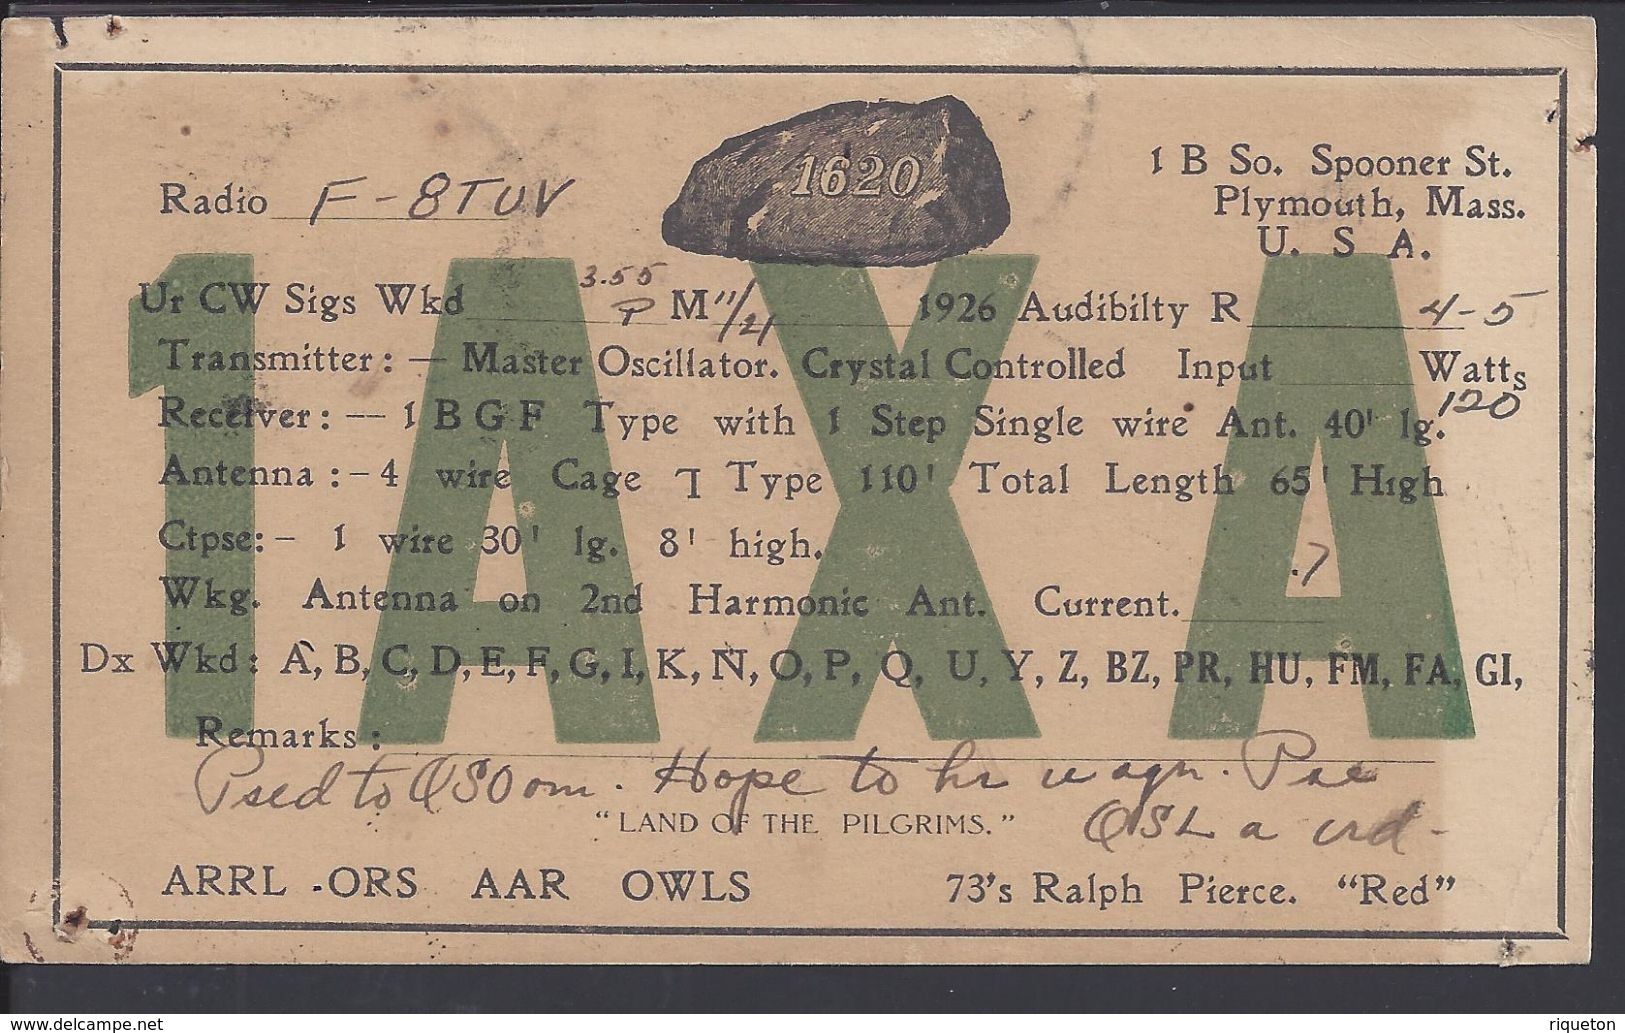 1620
1 B So. Spooner St.
Plymouth, Mass.
U. S A.
Radio F-8TUV
1AXA
Ur CW Sigs Wkd 3.55 P M 11/21 1926 Audibilty R 4-5
Transmitter: — Master Oscillator. Crystal Controlled Input 120 Watts
Receiver: — 1 B G F Type with 1 Step Single wire Ant. 40' lg.
Antenna :- 4 wire Cage ꓶ Type 110' Total Length 65' High
Ctpse: - 1 wire 30' lg. 8' high.
Wkg. Antenna on 2nd Harmonic Ant. Current. .7
Dx Wkd: A, B, C, D, E, F, G, I, K, N, O, P, Q, U, Y, Z, BZ, PR, HU, FM, FA, GI,
Remarks:
Psed to QSO om. Hope to hr u agn. Pse
QSL a crd-
"LAND OF THE PILGRIMS."
ARRL -ORS AAR OWLS 73's Ralph Pierce. "Red"
www.delcampe.net
riqueton